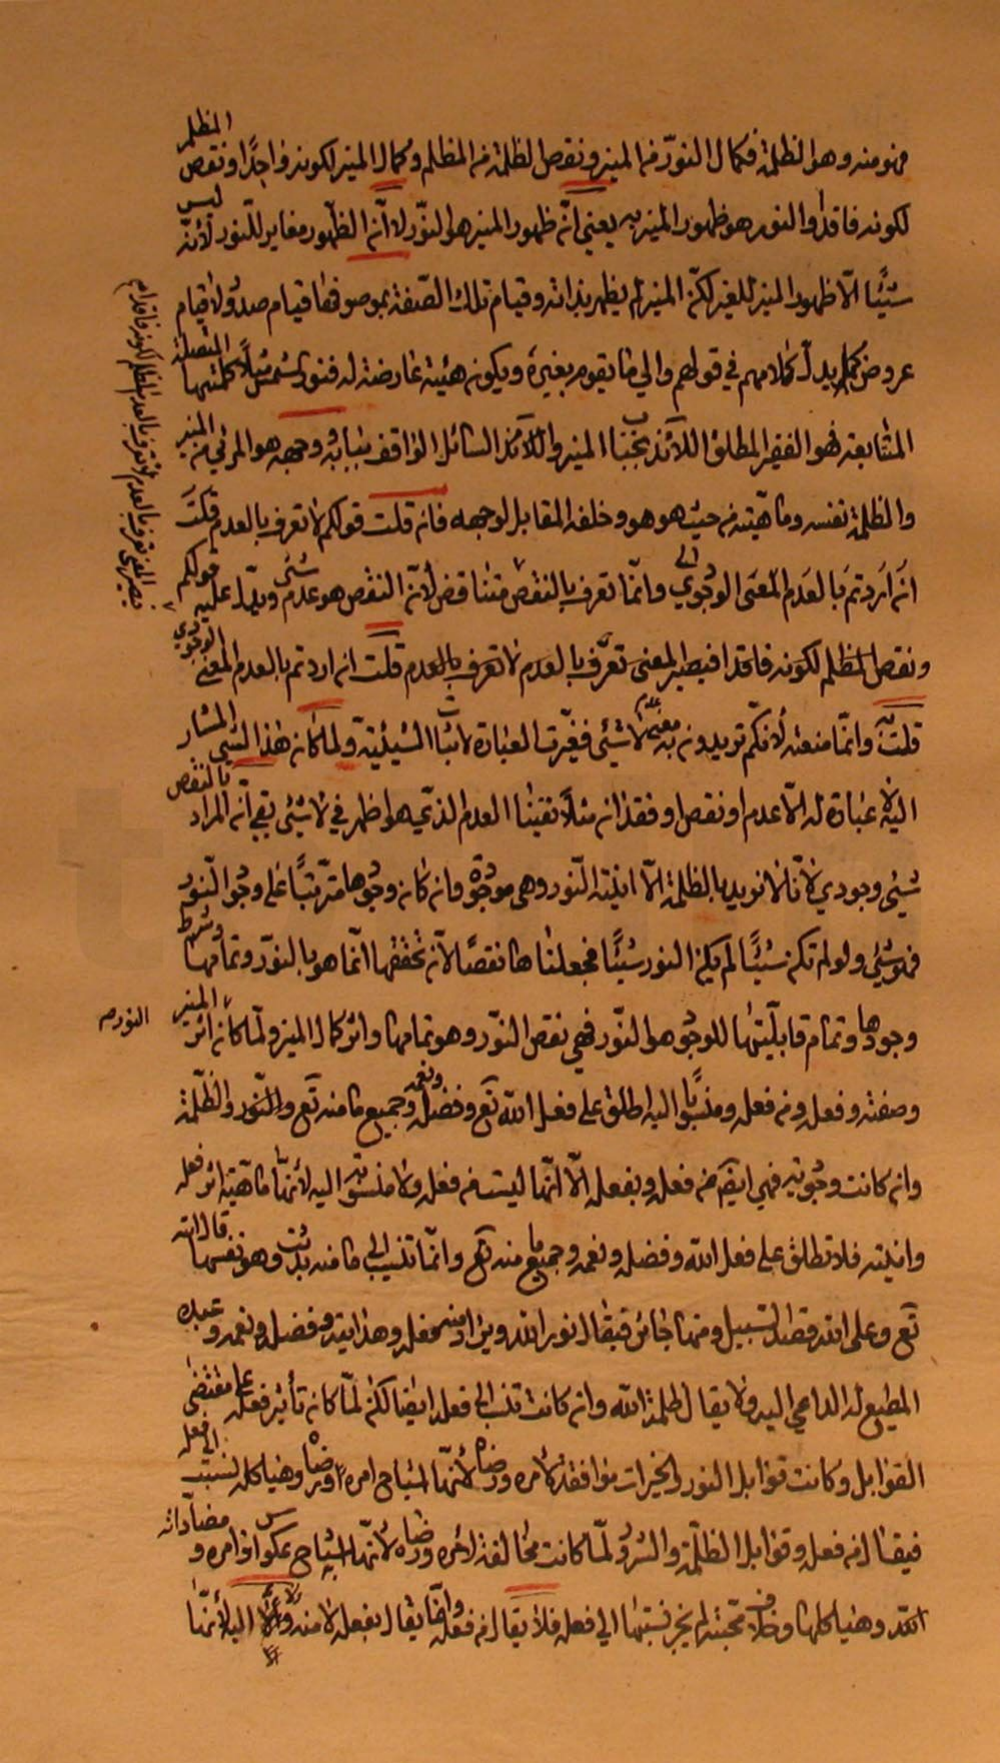 فهو منه وهو الظلمة فكمال النور من المنير ونقص الظلمة من المظلم وكمال المنير لكونه واجدًا ونقص المظلم
لكونه فاقدًا والنور هو ظهور المنير به يعني انّ ظهور المنير هو النّور لا انّ الظهور مغاير للنّور لأنّه ليس
شيئًا الّا ظهور المنير للغير لكنّ المنير لم يظهر بذاته وقيام تلك الصّفة بموصوفها قيام صدور لا قيام
عروض كما يدلّ كلامهم في قولهم والى ما يقوم بغيره ويكون هيئة عارضة له فنور الشمس مثلًا كلمتها المتصلة
المتتابعة فهو الفقير المطلق اللائذ بجناب المنير واللائذ السائل الواقف ببابه ووجهه هو المرئي من المنير
والظلمة نفسه وماهيته من حيث هو هو وخلفه المقابل لوجهه فان قلت قولكم لا تعرف بالعدم قلت
ان اردتم بالعدم المعنى الوجودي وانّما تعرف بالنقص متناقض لأنّ النقص هو عدم شئ ويدلّ عليه قولكم
ونقص المظلم لكونه فاقدا فيصير المعنى تعرّف بالعدم لا تعرف بالعدم قلت ان اردتم بالعدم المعنى الوجودي
قلت به وانّما منعته لأنكم تريدون به معنى لا شئ فغيّرت العبارة لاثبات الشيئيّة ولما كان هذا الشئ المشار
اليه لا عبارة له الّا عدم او نقص او فقدان مثلًا نفينا العدم الذي هو اظهر في لا شئ بقي انّ المراد بالنقص
شئ وجودي لأنّا لا نريد بالظلمة الّا انيّة النّور وهي موجودة وان كان وجودها مترتبًا على وجود النّور
فهو شئ ولو لم تكن شيئًا لم يكن النور شيئًا فجعلناها نقصًا لأنّ تحققها انّما هو بالنور وتمامها وشرط
وجودها وتمام قابليّتها للوجود هو النّور فهي نقص النّور وهو تمامها واثر كمال المنير ولمّا كان اثر المنير النور
وصفته وفعله ومن فعله ومنسوبًا اليه اطلق على فعل الله تع وفضله ونعمه وجميع ما منه تع والنّور والظّلمة
وان كانت وجودية فهي ايضًا من فعله وبفعله الّا انّها ليست من فعله ولا منسوبة اليه لأنّها ماهيّة اثر فعله
وانيّته فلا تطلق على فعل الله وفضله ونعمه وجميع ما منه تع وانّما تنسب الى ما منه بدئت وهو نفسها قال الله
تع وعلى الله قصد السبيل ومنها جائر فيقال نور الله ويراد منه فعله وهدايته وفضله ونعمه وعبده
المطيع له الداعي اليه ولا يقال ظلمة الله وان كانت تنسب الى فعله ايضا لكن لمّا كان تأثير فعله على مقتضى
القوابل وكانت قوابل النور والخيرات موافقة لأمره ورضاه لأنّها اشباح امره ورضاه وهياكله نسبت الى فعله
فيقال من فعله وقوابل الظلمة والشرور لمّا كانت مخالفة لأمره ورضاه لأنّها اشباح عكوس اوامره ومضادّاته
الله وهياكلها وخلاف محبّته لم يجز نسبتها الى فعله فلا يقال من فعله وانّما يقال بفعله لا منه ولا اليه لأنّها